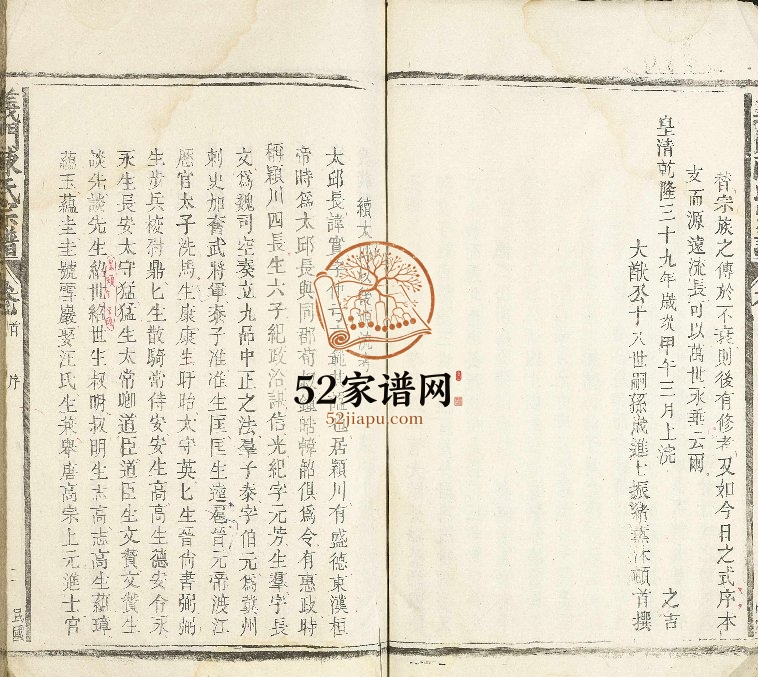 替宗族之傳於不衰則後有修者又如今日之式序本
支而源遠流長可以萬世永垂云爾
皇清乾隆三十九年歲次甲午三月上浣 之吉
大猷公十八世嗣孫歲進士振緒薰沐頓首撰
續太
太邱長諱實 居潁川有盛德東漢桓
帝時爲太邱長與同郡荀 鍾皓韓韶俱爲令有惠政時
稱潁川四長生六子紀政洽諶信光紀字元芳生羣字長
文爲魏司空奏立九品中正之法羣子泰字伯元爲 州
刺史加奮武將軍泰子准准生匡匡生逵 晉元帝渡江
歷官太子洗馬生康康生盱眙太守英匕生晉尚書弼弼
生步兵校尉鼎匕生散騎常侍安安生高高生德安令永
永生長安太守猛猛生太常卿道臣道臣生文贊文贊生
談先談先生 世 世生叔明叔明生志高志高生蘊璋
蘊玉蘊圭圭號雪巖娶汪氏生 舉唐高宗上元進士官
義門陳氏宗譜
卷首
序
民國
52家谱网
52jiapu.com